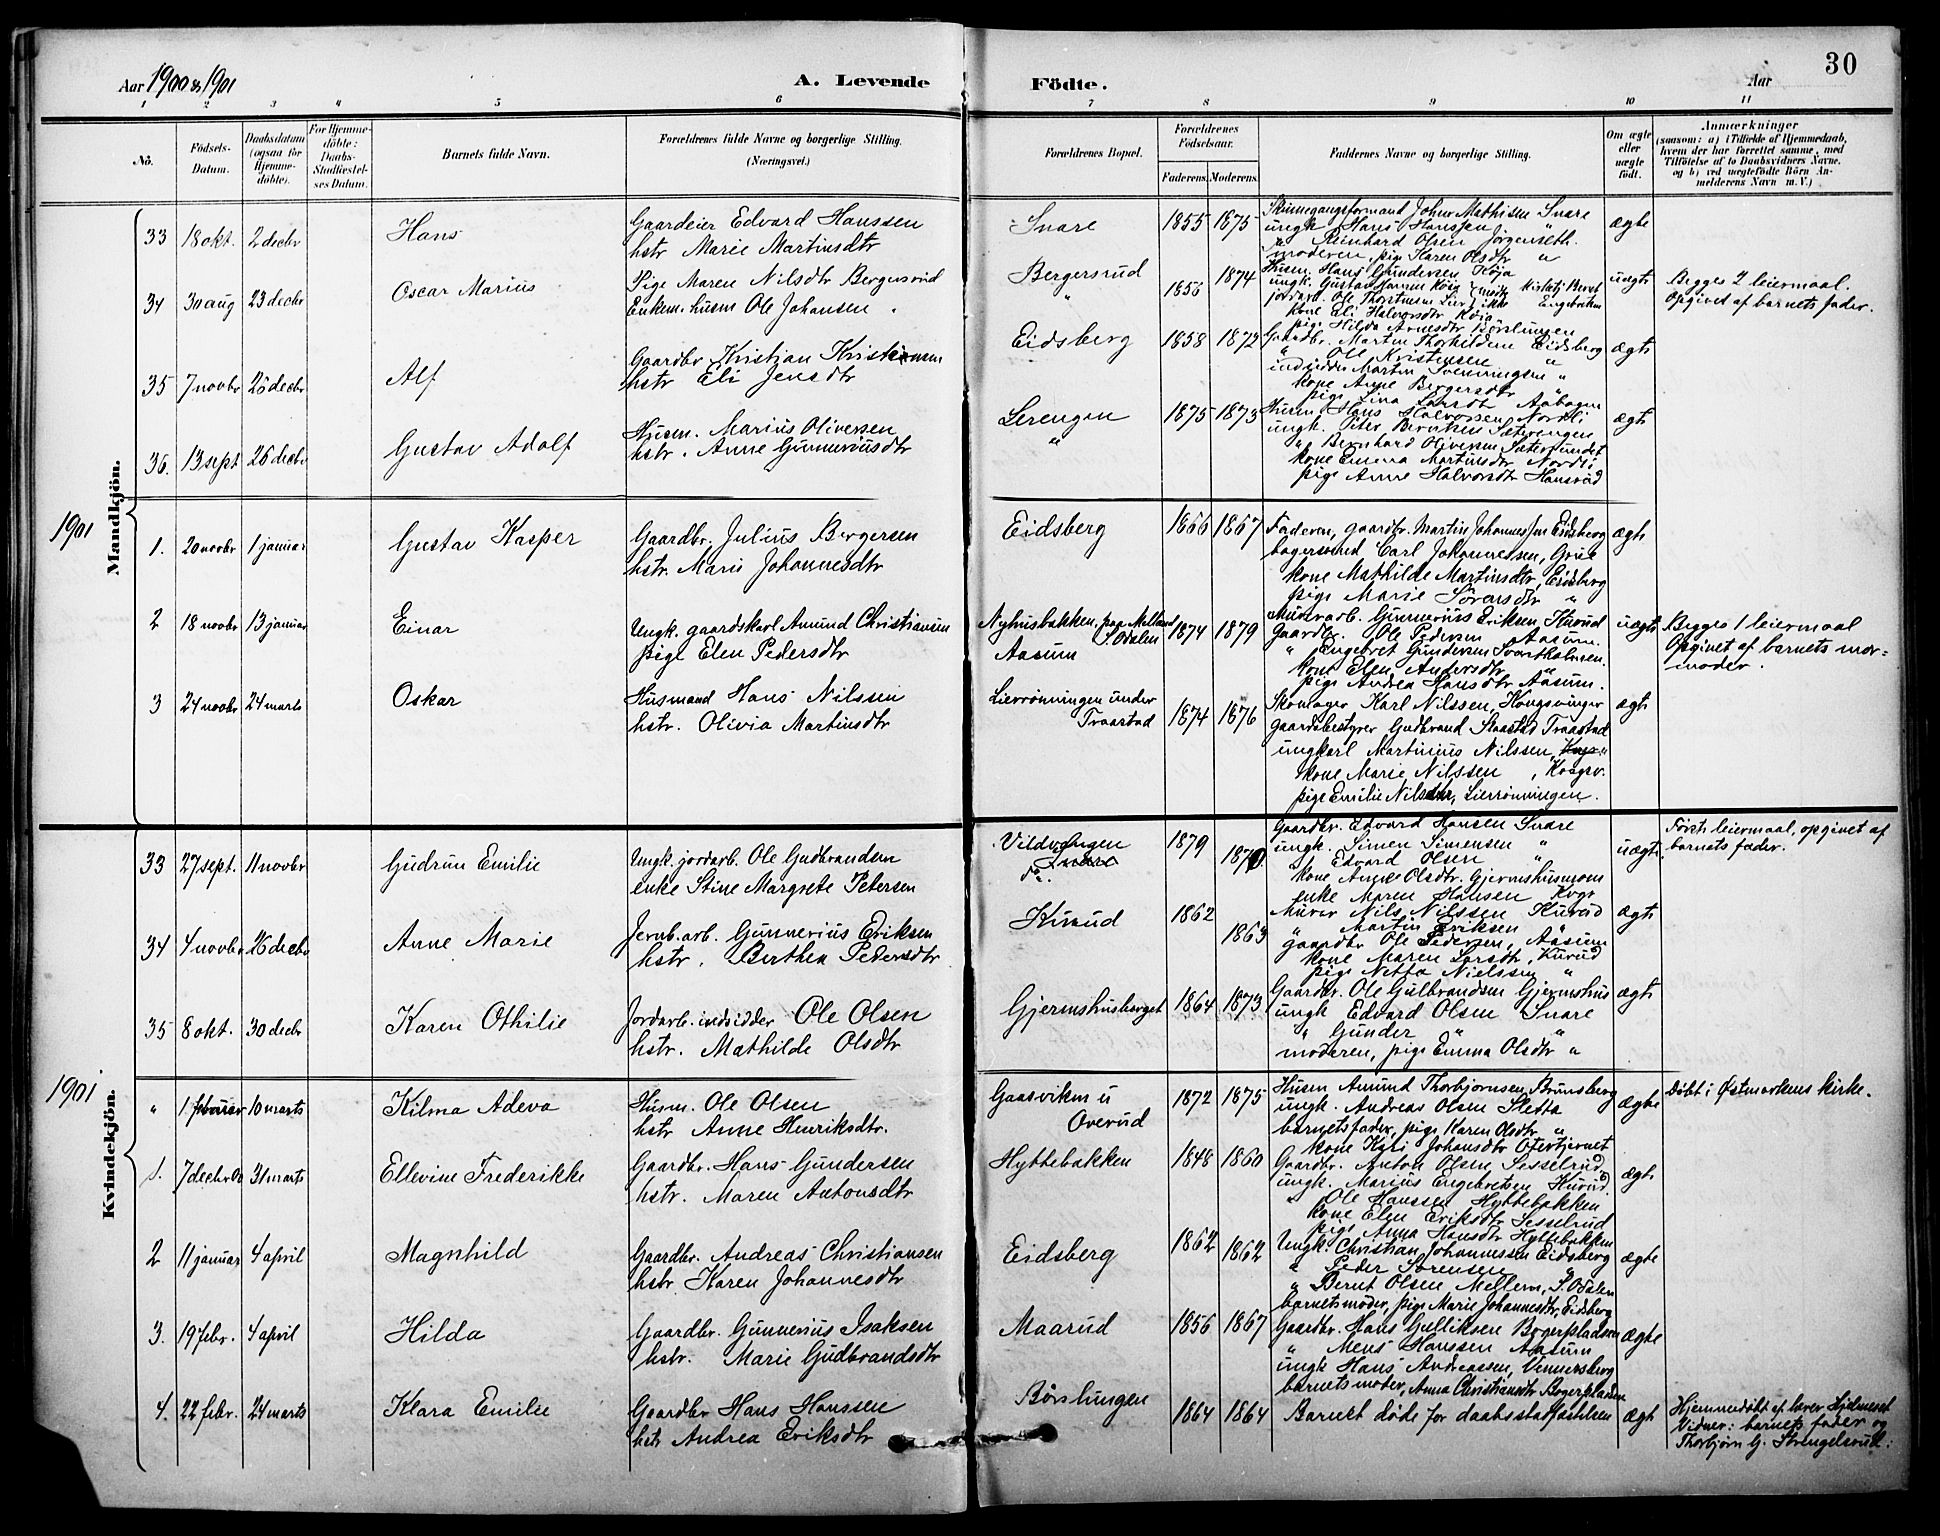 Aar 1900 & 1901
A. Levende
Födte.
Aar
30
1 2 3 4 5 6 7 8 9 10 11
No.
Födsels-Datum.
Daabsdatum (ogsaa for Hjemmedöbte).
For Hjemmedöbte: Daabs-Stadfestelses Datum.
Barnets fulde Navn.
Forældrenes fulde Navne og borgerlige Stilling.
(Næringsvei.)
Forældrenes Bopæl.
Forældrenes Födselsaar.
Faderens. Moderens.
Faddernes Navne og borgerlige Stilling.
Om ægte eller uægte födt.
Anmærkninger
(saasom: a) i Tilfælde af Hjemmedaab, hvem der har forrettet samme, med Tilföielse af to Daabsvidners Navne, og b) ved uægtefödte Börn Anmelderens Navn m. V.)
Mandkjön.
33 18 okt. 2 decbr Hans
Gaardeier Edvard Hanssen
hstr Marie Martinsdtr
Snare 1855 1875
Skinnegangsformand Johne Mathisen Snare
ungk Hans Hanssen "
" Reinhard Olsen Jørgenseth.
moderen, pige Karen Olsdtr "
ægte
34 30 aug 23 decbr Oscar Marius
Pige Maren Nilsdtr Bergersrud
Enkem. husm Ole Johansen "
Bergersrud 1856 1874
Husm. Hans Gundersen Koja
kone Eli Halvorsdtr Koja
pige Hilda Arnesdtr Børslungen
uægte
Begges 2 leiermaal.
Opgivet af barnets fader.
35 7 novbr 26 decbr Alf
Gaardbr Kristian Kristiansen
hstr Eli Jensdtr
Eidsberg 1858 1872
Gaardbr. Martin Thorkildsen Eidsberg
" Ole Kristensen "
indsidder Martin Svenningsen "
kone Anne Bergersdtr "
pige Lina Larsdtr Aabogen
ægte
36. 13 sept 26 decbr Gustav Adolf
Husm. Marius Oliversen
hstr. Anne Gunneriusdtr
Lerengen 1875 1873
Husm. Hans Halvorsen Nordli
ungk. Peter Berntsen Sæterengen
" Bernhard Oliversen Sætersundet
kone Emma Martinsdtr Nordli
pige Anne Halvorsdtr Hansrud
ægte
1901
1. 20 novbr 1 januar Gustav Kasper
Gaardbr. Julius Bergersen
hstr. Marie Johannesdtr
Eidsberg 1866 1867
Faderen, gaardbr. Martin Johannessen Eidsberg
bagersvend Carl Johannessen, Grue
kone Mathilde Martinsdtr, Eidsberg
pige Marie Sörensdtr "
ægte
2 18 novbr 13 januar Einar
Ungk. gaardskarl Amund Christiansen
pige Elen Pedersdtr
Nyhusbakken, pige Melland S. Odalen
Aasum 1874 1879
Murerarb. Gunnerius Eriksen Kurud
Gaardbr. Ole Pedersen Aasum.
" Engebret Gundersen Svartholmen.
kone Elen Andersdtr "
pige Andrea Hansdtr Aasum.
uægte
Begges 1 leiermaal
Opgivet af barnets mor=
moder.
3 24 novbr 24 marts Oskar
Husmand Hans Nilssen
hstr. Olivia Martinsdtr
Lierrönningen under
Traastad 1874 1876
Skomager Karl Nilssen, Kongsvinger
gaardsbestyrer Gudbrand Staastad Traastad
ungkarl Martinius Nilssen, Kongs "
kone Marie Nilssen, Kongsv.
pige Emilie Nilsdtr, Lierrönningen.
ægte
Kvindekjön.
33 27 sept. 11 novbr Gudrun Emilie
Ungk. jordarb. Ole Gudbrandsen
enke Stine Margrete Petersen
Vildvangen
Snare 1879 1870
Gaardbr. Edvard Hansen Snare
ungk. Simen Simensen "
" Edvard Olsen "
kone Anne Olsdtr. Gjermshusmoen
enke Maren Hansen Kvgr
uægte
Første leiermaal, opgivet af
barnets fader.
34 4 novbr 26 decbr Anne Marie
Jernb.arb. Gunnerius Eriksen
hstr. Berthea Pedersdtr
Kurud 1862 1863
Murer Nils Nilssen Kurud
" Martin Eriksen "
gaardbr Ole Pedersen, Aasum
kone Maren Larsdtr, Kurud
pige Netta Nielssen "
ægte
35 8 okt. 30 decbr Karen Othilie
Jordarb. indsidder Ole Olsen
hstr. Mathilde Olsdtr
Gjermshusberget 1864 1873
Gaardbr. Ole Gulbrandsen Gjermshus
ungk Edvard Olsen Snare
" Gunder " "
moderen, pige Emma Olsdtr "
ægte
1901
" 1 februar 10 marts Kilma Adeva
Husm. Ole Olsen
hstr. Anne Henriksdtr.
Gaasviken u
Overud 1872 1875
Husm Amund Thorbjørnsen, Brunsberg
ungk. Andreas Olsen Sletta
barnets fader, pige Karen Olsdtr "
kone Kari Johansdtr Oterstjernet
ægte
Døbt i Østmarkens kirke.
1. 7 decbr 00 31 marts Ellevine Frederikke
Gaardbr. Hans Gundersen
hstr. Maren Antonsdtr
Hyttebakken 1848 1860
Gaardbr. Anton Olsen Sesselrud
ungk. Marius Engebretsen Kurud
" Ole Hanssen Hyttebakken
kone Elen Eriksdtr Sesselrud
pige Anna Hansdtr Hyttebakken
ægte
2 11 januar 4 april Magnhild
Gaardbr. Andreas Christiansen
hstr. Karen Johannesdtr
Eidsberg 1862 1862
Ungk. Christian Johannessen Eidsberg
" Peder Sörensen "
" Bernt Olsen Mellem, S. Odalen
barnets moder, pige Marie Johannesdtr, Eidsberg
ægte
3. 19 febr. 4 april Hilda
Gaardbr. Gunnerius Isaksen
hstr. Marie Gudbrandsdtr
Maarud 1856 1867
Gaardbr. Hans Gulliksen Bogerpladsen
" Mens Hanssen Aasum
ungk Hans Andreassen, Vennersberg
barnets moder, Anna Christiansdtr Bogerpladsen
ægte
4. 22 febr. 24 marts Klara Emilie
Gaardbr Hans Hanssen
hstr Andrea Eriksdtr
Børslungen 1864 1864
Barnet døde før daabsstadfæstelsen
ægte
Hjemmedøbt af lærer Hjelmeset
Vidner: barnets fader og
Thorbjørn G. Strengelsrud.